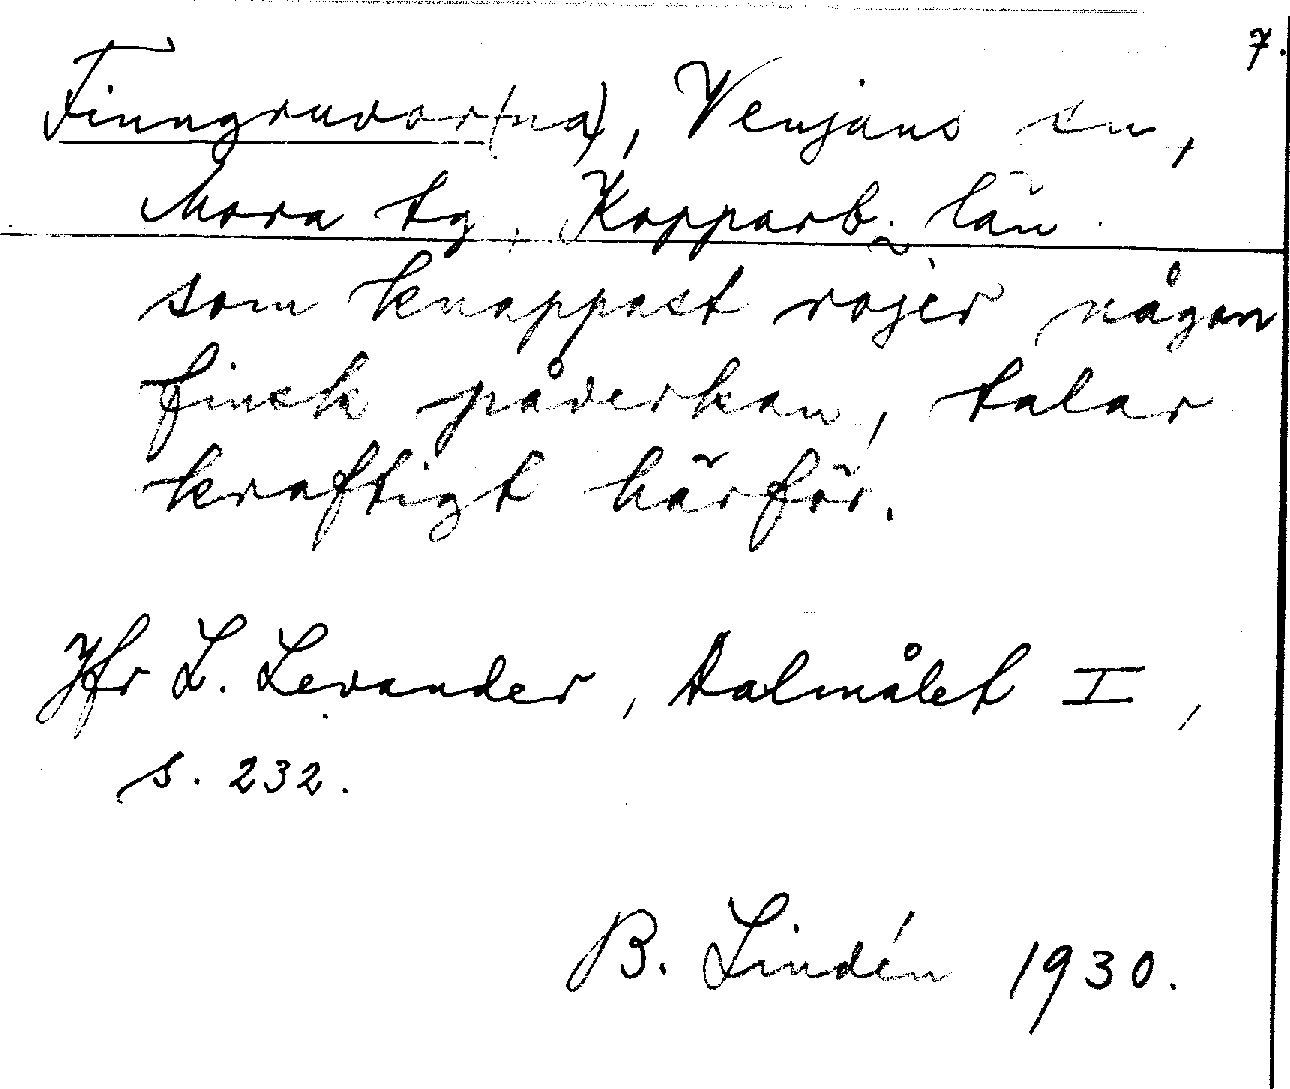 7.
Finngruvor(na), Venjans sn,
Mora tg, Kopparb. län
som knappast röjer någon
finsk påverkan, talar
kraftigt härför.
Jfr L. Levander, Dalmålet I,
s. 232.
B. Lindén 1930.